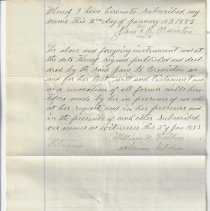 Whereof I have hereunto subscribed my
name this 2nd day of January A.D. 1883
Jane M. Ormiston
The above and foregoing instrument was at
the date thereof signed published and declared
by the said Jane M. Ormiston as
and for her last will and testament and
as a revocation of all former wills by her
before made by her in presence of us who
at her request, and in her presence and
in the presence of each other subscribed
our names as witnesses this 2d Jan 1883
William
Witnesses
Solomon